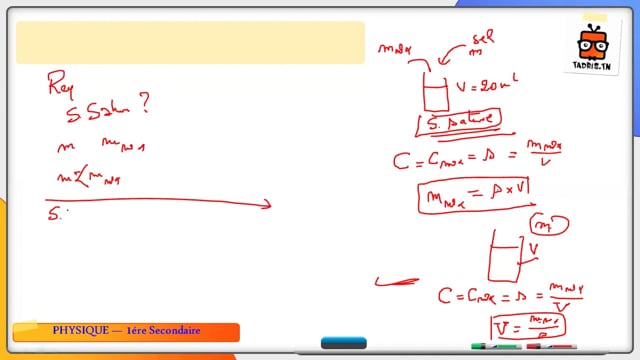 Req
S. Satur ?
m m max
m < m max
S.
m max
sel
m
V = 20 mL
S. saturé
C = C max = s = m max / V
m max = s × V
m
V
C = C max = s = m max / V
V = m max / s
TADRIS.TN
PHYSIQUE — 1ére Secondaire